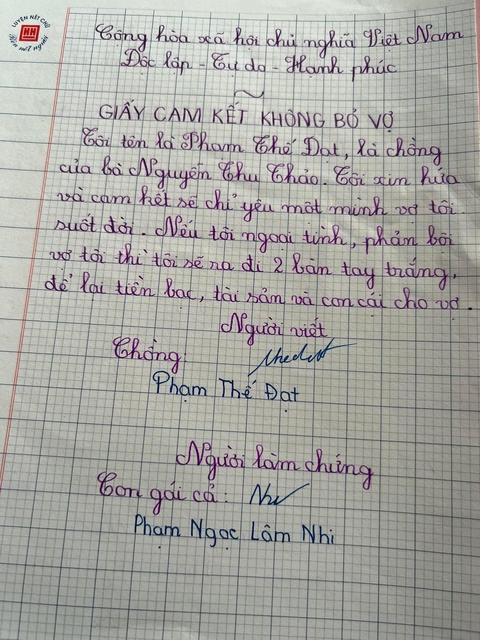 LUYỆN NÉT CHỮ
HH
RÈN NẾT NGƯỜI
Cộng hòa xã hội chủ nghĩa Việt Nam
Độc lập - Tự do - Hạnh phúc
GIẤY CAM KẾT KHÔNG BỎ VỢ
Tôi tên là Phạm Thế Đạt, là chồng
của bà Nguyễn Thu Thảo. Tôi xin hứa
và cam kết sẽ chỉ yêu một mình vợ tôi
suốt đời. Nếu tôi ngoại tình, phản bội
vợ tôi thì tôi sẽ ra đi 2 bàn tay trắng,
để lại tiền bạc, tài sản và con cái cho vợ.
Người viết
Chồng:
Phạm Thế Đạt
Người làm chứng
Con gái cả: Nhi
Phạm Ngọc Lâm Nhi